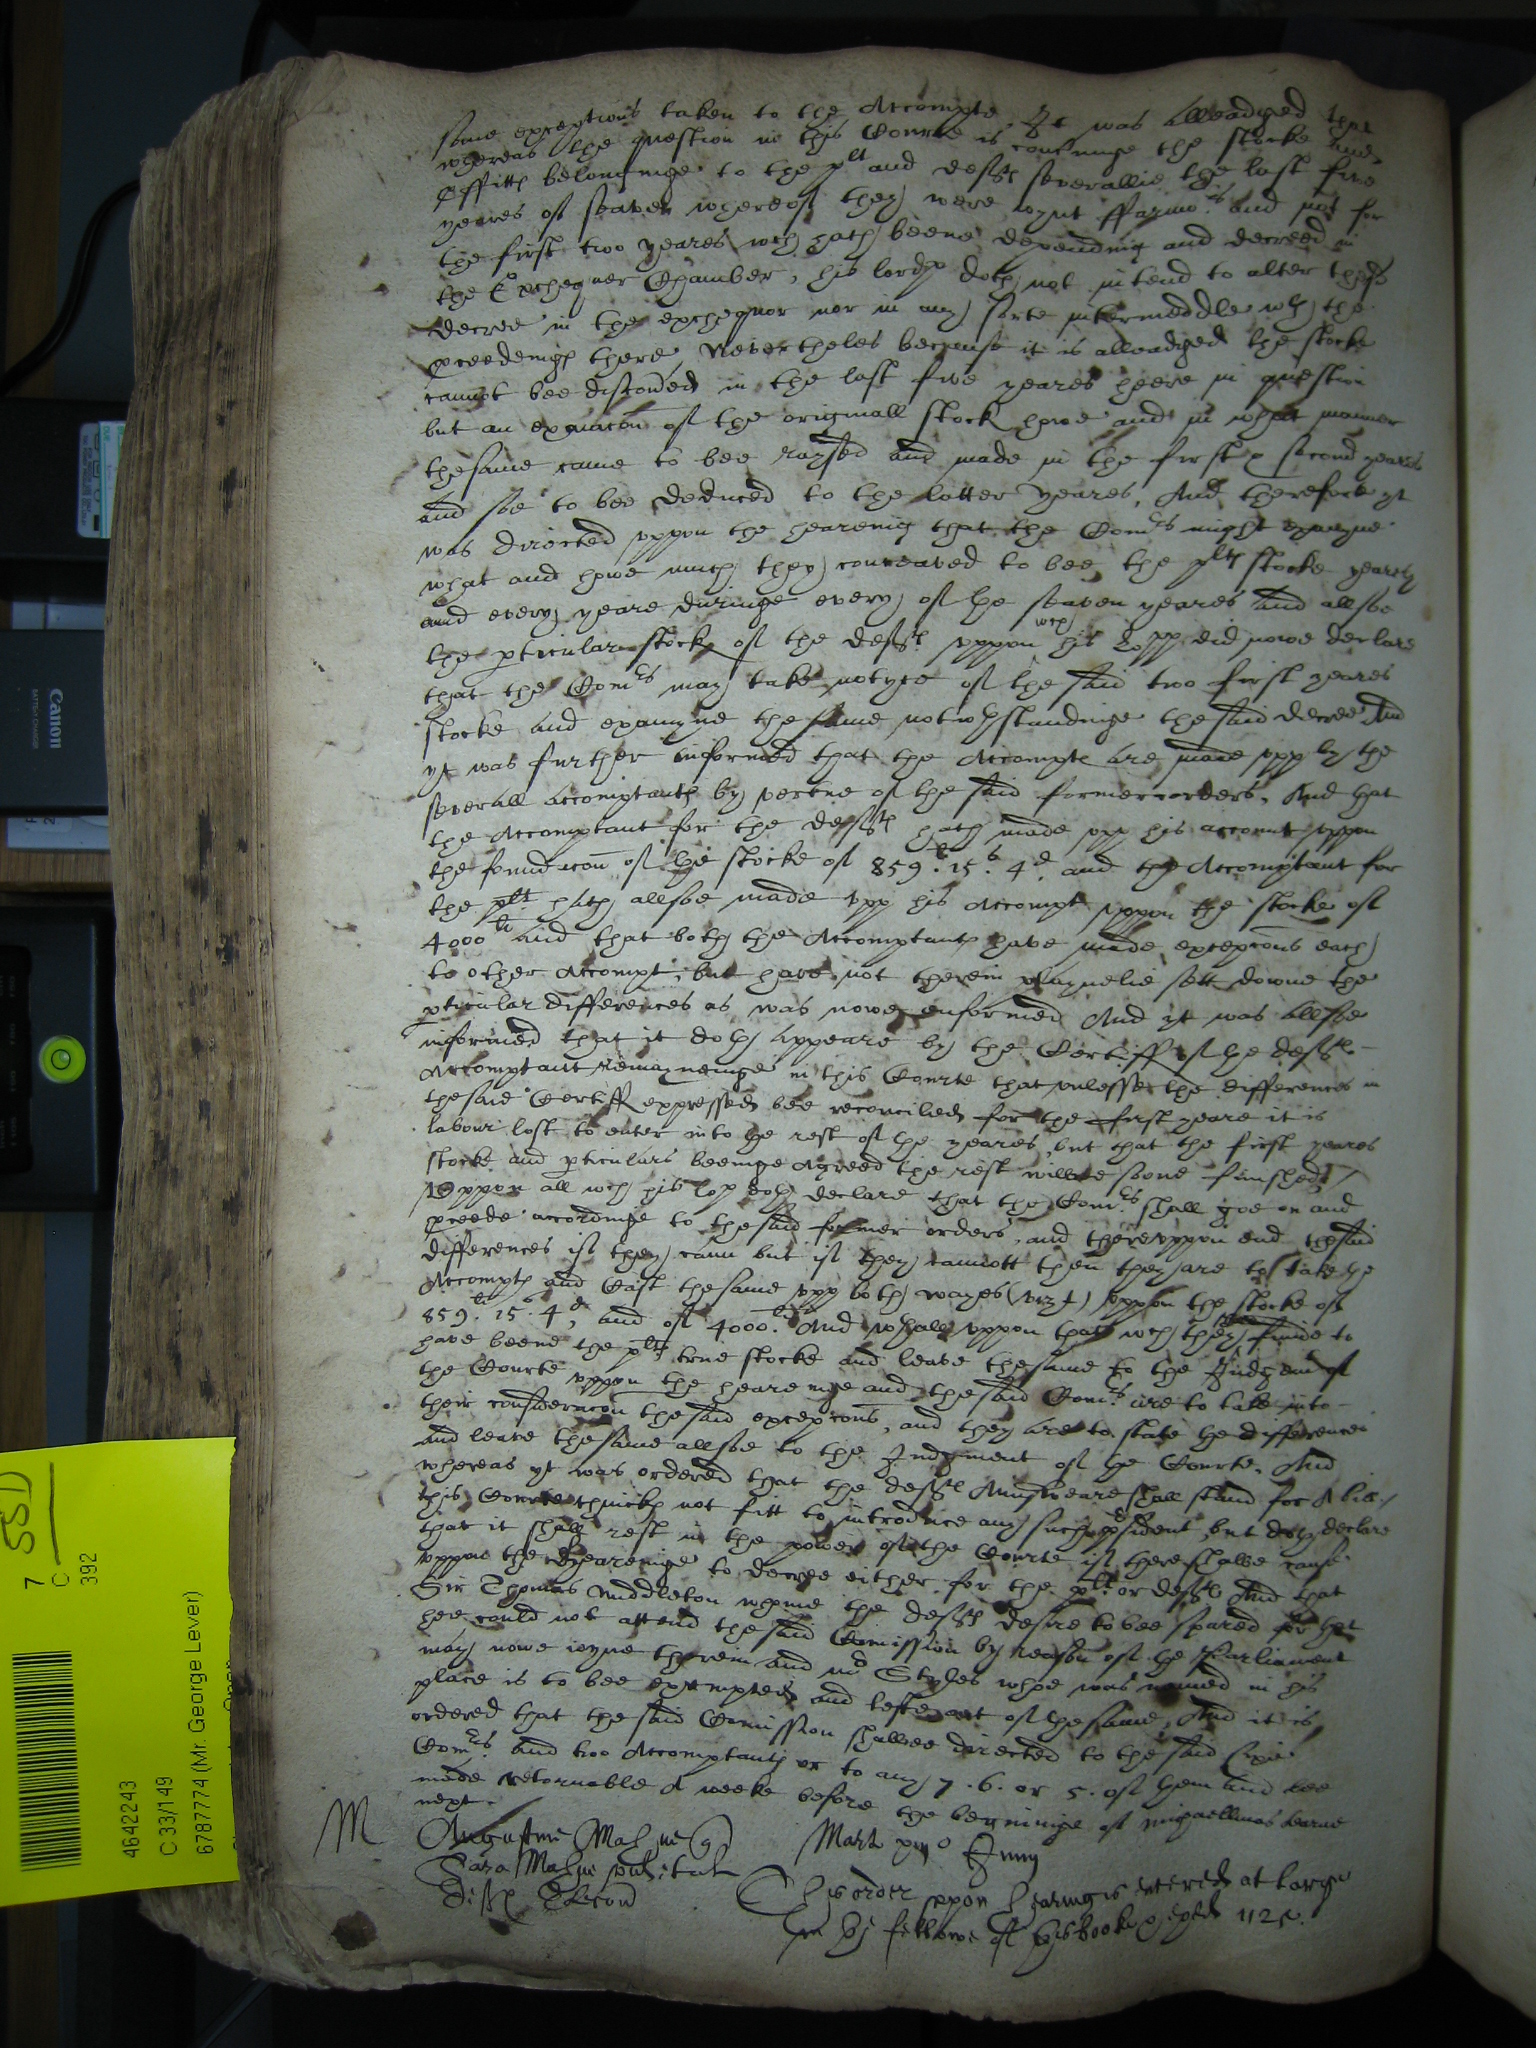 some exceptions taken to the Accompte. It was alleadged that
whereas the question in this Courte is concerninge the stocke and
pffitts belonginge to the plt and defts severallie the last five
yeares of seaven whereof they were ioynt ffarmors and not for
the first two yeares wch hath beene depending and decreed in
the Exchequer Chamber, his lordp doth not intend to alter the
decree in the exchequor nor in any sorte intermeddle wth the
pceedings there, Nevertheles because it is alleadged the stocke
cannot bee discerned in the last five yeares heere in question
but an exaiacon of the originall stock howe and in what manner
thesame came to bee raysed and made in the first & second yeares
and soe to bee deduced to the latter yeares, And therefore yt
was directed uppon the hearing that the Comrs might examyne
what and howe much they conceaved to bee the plts stocke yearely
and every yeare duringe every of the seaven yeares and allsoe
the pticular stock of the defts uppon wch his Lopp did nowe declare
that the Comrs may take notyce of the said two first yeares
stocke and examyne the same notwthstandinge the said decree, And
yt was further informed that the Accompts are made upp by the
severall accomptants by vertue of the said former orders, And that
the Accomptant for the defts hath made upp his account uppon
the foundacon of the stocke of 859.li 15.s 4.d and the Accomptant for
the plt hath allsoe made upp his Accompt uppon the stocke of
4000li and that both the Accomptants have made excepcons each
to other Accompt, but have not therein playnelie sett downe the
pticular differences as was nowe enformed And yt was allsoe
informed that it doth appeare by the Certiff of the defts
Accomptant remayneinge in this Courte that unlesse the differences in
thesaid Certiff expressed bee reconciled for the first yeare it is
labour lost to enter into the rest of the yeares, but that the first yeares
stocke and pticulars beeinge agreed the rest wilbee soone finished,
Uppon all wch his lop doth declare that the Comrs shall goe on and
pceede accordinge to thesaid former orders, and thereuppon end thesaid
differences if they cann but if they cannott then they are to take the
Accompts and Cast thesame upp both wayes (vizt) uppon the stocke of
859.li 15.s 4.d, and of 4000.li And wthall uppon that wch they finde to
have beene the plts true stocke and leave thesame to the Judgemt of
the Courte uppon the heareinge and thesaid Comrs are to take into
their consideracon thesaid excepcons, and they are to state the differences
and leave thesame allsoe to the Judgment of the Courte. And
whereas yt was ordered that the defts Aunsweare shall stand for A bill,
this Courte thincks not fitt to introduce any such psident, but doth declare
that it shall rest in the power of the Courte if there shalbe cause
uppon the heareinge to decree either for the plt or defts And that
Sir Thomas Middleton whome the defts desire to bee spared for that
hee could not attend the said Comission by reason of the Parliament
may nowe ioyne therein and mr Styles whoe was named in his
place is to bee exempted and lefte out of thesame, And it is
ordered that the said Comission shallbee directed to the said
Comrs. and two Accomptants or to any 7. 6. or 5. of them and bee
made retornable A weeke before the beginninge of michaellmas terme
next.
M
Mart xiijo Juny
Defts
This order uppon hearing is entered at large
in by fellowe of this booke 1125.
7
SSD
C
392
4642243
C 33/149
6787774 (Mr. George Lever)
Canon
BATTERY CHARGER